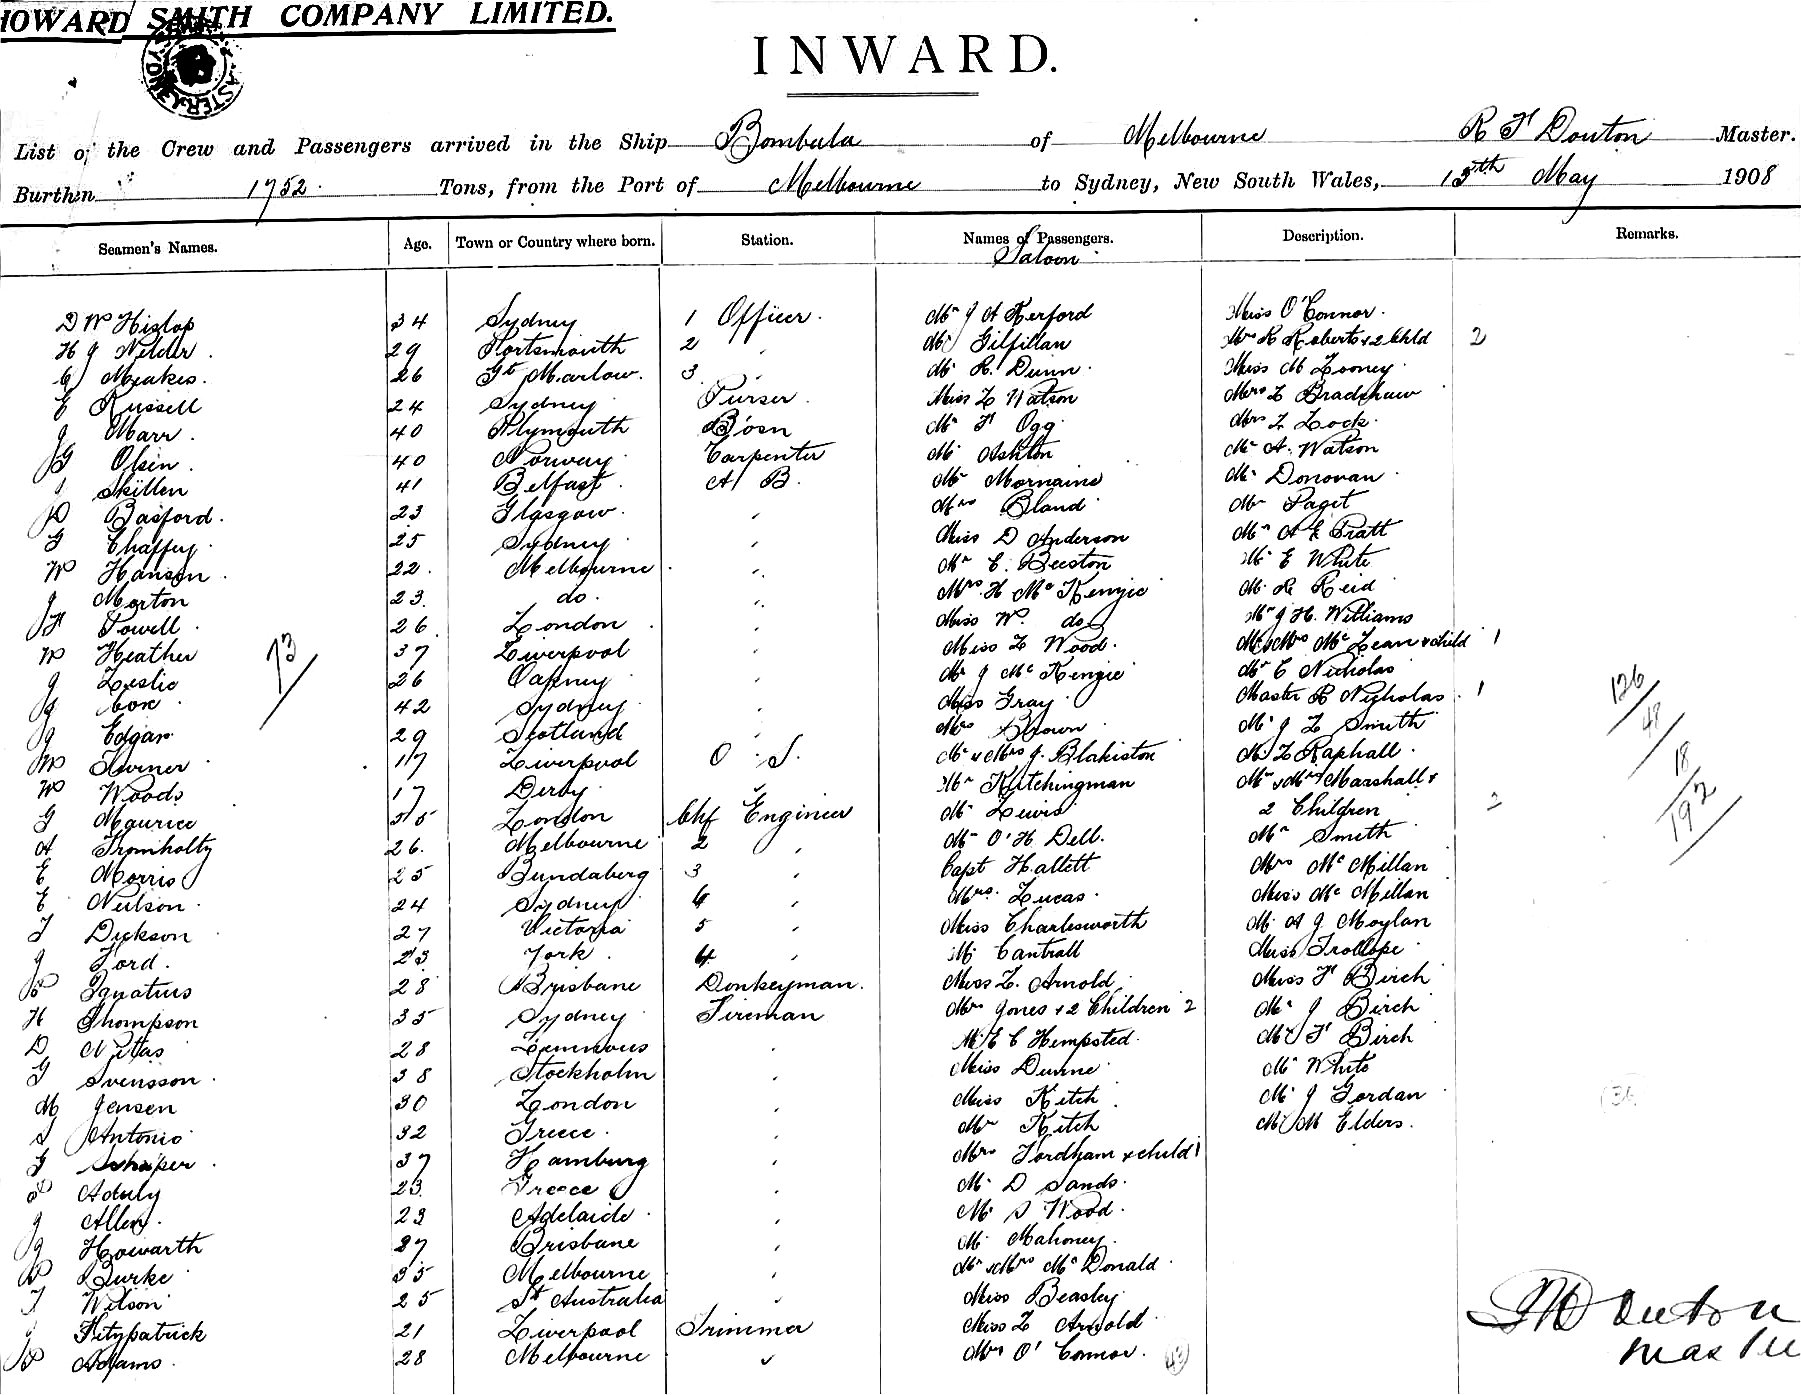 HOWARD SMITH COMPANY LIMITED.
INWARD.
List of the Crew and Passengers arrived in the Ship Bombala of Melbourne R F Douton Master.
Burthen 1752 Tons, from the Port of Melbourne to Sydney, New South Wales, 15th May 1908
Seamen's Names. Age. Town or Country where born. Station. Names of Passengers. Description. Remarks.
Saloon
D W Hislop 34 Sydney 1 Officer. Mr J A Kerford Miss O'Connor.
H J 29 Portsmouth 2 Mr Gilfillan Mrs R Roberts + 2 Chld 2
C Meakes. 26 Gt Marlow. 3 Mr R. Dunn Miss M Looney.
E Russell 24 Sydney Purser. Miss L Watson Mrs L Bradshaw
J Marr. 40 Plymouth Bosn Mr F Ogg Mrs L Lock.
G Olsen. 40 Norway Carpenter Mr Ashton Mr A. Watson
J Skillen 41 Belfast A B. Mr Mornaine Mr Donovan
P Basford. 23 Glasgow. Mrs Bland Mr Paget
G Chaffey 25 Sydney Miss D Anderson Mr A E Pratt
W Hanson 22. Melbourne Mr C. Beeston Mr E White
J Morton 23. do. Mrs H McKenzie Mr R Reid
F Powell 26 London Miss W. do Mr J H. Williams
W Heather 37 Liverpool Miss L Wood. Mr & Mrs McLean + child 1
J Leslie 26 Orkney Mr J McKenzie Mr C Nicholas
J Cox 42 Sydney Miss Gray Master R Nicholas. 1
J Edgar 29 Scotland Mrs Brown Mr J L Smith
W Turner 17 Liverpool O S. Mr & Mrs J. Blakiston Mr L Raphall.
W Woods 17 Derby Mr Kitchingman Mr & Mrs Marshall +
G Maurice London Chf Engineer Mr Lewis 2 Children 2
A Tromholtz 26. Melbourne 2 Mr O'H Dell. Mr Smith
E Morris 25 Bundaberg 3 Capt Hallett Mrs McMillan
E Neilson 24 Sydney 4 Mrs. Lucas Miss McMillan
T Dickson 27 Victoria 5 Miss Charlesworth Mr A J Moylan
J Ford. 23 York 4 Mr Cantrall Miss Trollope
P Ignatius 28 Brisbane Donkeyman. Miss L. Arnold Miss F Birch
H Thompson 35 Sydney Fireman Mrs Jones + 2 Children 2 Mr J Birch
D Nitas 28 Lemnous Mr E C Hempsted. Mr F Birch
G Svensson 38 Stockholm Miss Dunne Mr White
M Jensen 30 London Miss Kitch Mr J Gordan
S Antonio 32 Greece. Mr Kitch Mr M Elders.
G Schaper 37 Hamburg Mrs Fordham + child 1
P Aduly 23. Greece Mr D Sands.
J Allen. 23 Adelaide Mr S Wood.
J Howarth 27 Brisbane Mr Mahoney.
P Burke 35 Melbourne Mr & Mrs McDonald
T Wilson 25 St Australia Miss Beasley
J Fitzpatrick 21 Liverpool Trimmer Miss L Arnold
P Adams. 28 Melbourne Mrs O'Connor. 43
73
126
48
18
192
36
Douton
Master